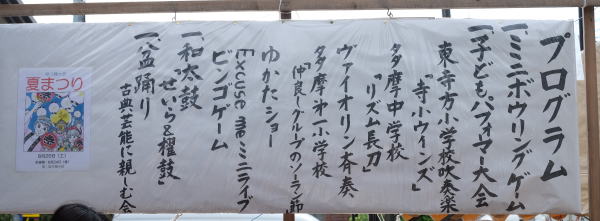 プログラム
一ミニボウリングゲーム
一子どもパフォーマー大会
東寺方小学校吹奏楽
「寺小ウインズ」
多摩中学校
「リズム長刀」
ヴァイオリン斉奏、
多摩第一小学校
「仲良しグループのソーラン節
ゆかたショー
Excuse meミニライブ
ビンゴゲーム
一和太鼓
「せいら&櫂鼓」
一公盆踊り
古典芸能に親しむ会
夏まつり
8月25日(土)